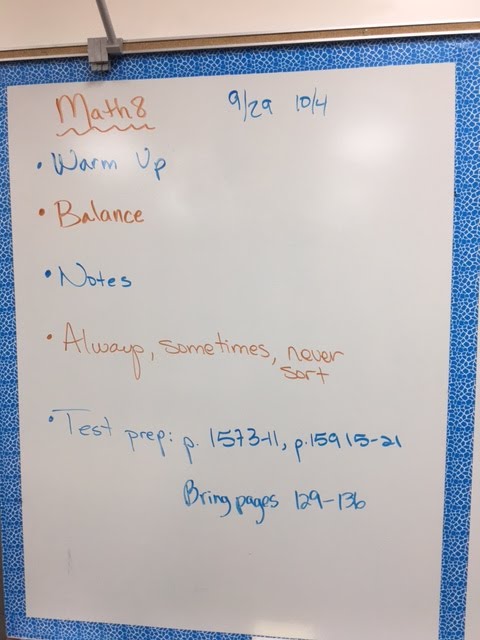 Math 8 9/29 10/4
• Warm Up
• Balance
• Notes
• Always, sometimes, never
sort
• Test prep: p. 157 3-11, p. 159 15-21
Bring pages 129-136